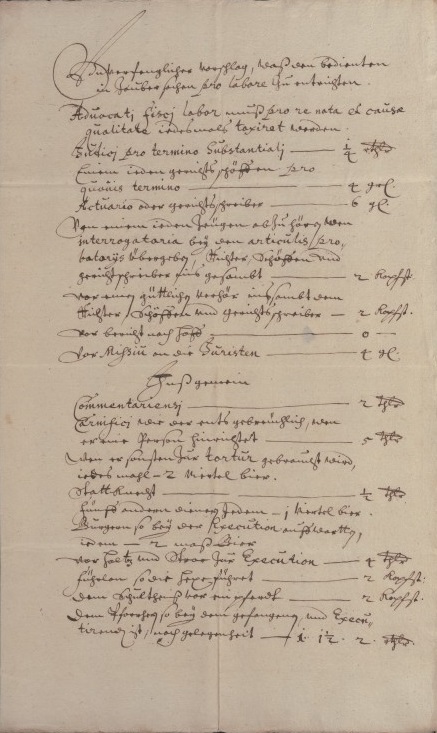 Unverfenglicher vorschlag, daß den bedienten
in Zauber sachen pro labore zu entrichten.
Advocati fisci labor muß pro re nata et causae
qualitate iedesmals taxiret werden.
Judici pro termino substantiali — ½ thlr
Einem ieden gerichts schöffen pro
quovis termino — 4 gr.
Actuario oder gerichtschreiber — 6 gl.
Von einem ieden Zeugen abzuhören wen
interrogatoria bey den articulis pro-
batorijs übergeben, Richter, Schöffen und
gerichtschreiber ins gesambt — 2 Kopfst.
Vor einen gütlichen verhör ins sambt dem
Richter, Schöffen und gerichtschreiber — 2 Kopfst.
Vor bericht nach hoff — 0 —
Vor Missiv an die Juristen — 4 gl.
Insgemein
Commentariensi — 2 thlr
Carnifici wie der orts gebreuchlich, wen
er eine Person hinrichtet — 5 thlr
Wen er sonsten zur tortur gebraucht wird,
iedes mahl — 2 Viertel bier.
Statt Knecht — ½ thlr
fünff anderen dienern Jedem — j Viertel bier.
Burgern so bey der Execution auffwarten,
iedem — 2 maß Bier
Vor holtz und Stroe zur Execution — 4 thlr
fuhrlon so die hexe führet — 2 Kopfst.
dem Schultheiß vor ein pferdt — 2 Kopfst.
dem Pfarrherrn so bey dem gefangenen, und Execu-
tirende ist, nach gelegenheit — 1. 1½. 2. thlr